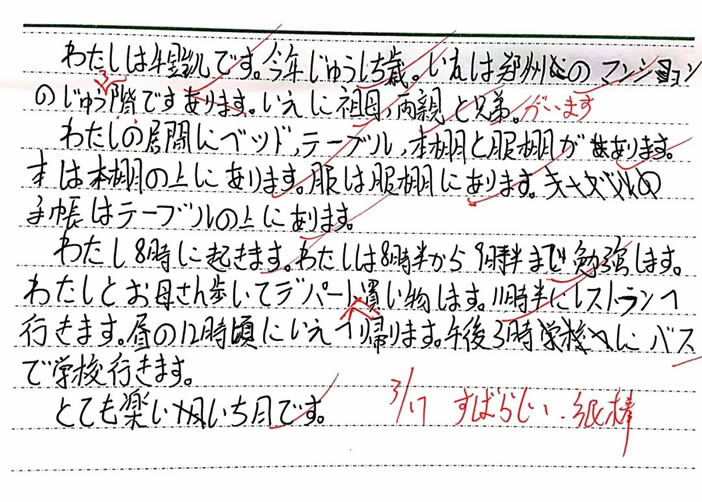 わたしは牛龍凱です。今年じゅうしち歳。いえは郑州的の マンション
のじゅう階ですあります。いえに祖母,両親と兄弟。がいます
わたしの居間にベッド,テーブル,本棚と服棚があります。
本は本棚の上にあります。服は服棚にあります。
手帳はテーブルの上にあります。
わたし8時に起きます。わたしは8時半から9時半まで勉強します。
わたしとお母さん歩いてデパートへ買い物します。11時半にレストランへ
行きます。昼の12時頃にいえへ帰ります。午後3時学校へに バス
で学校行きます。
とても楽しいいち日です。 3/17 すばらしい.